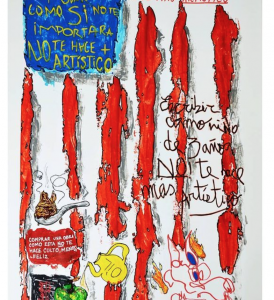 COMO SI NO TE
IMPORTARA
NO TE HACE +
ARTÍSTICO
Escribir
como niño
de 3 años
NO te hace
mas artístico
COMPRAR UNA OBRA
COMO ESTA NO TE
HACE CULTO, MENOS
FELIZ
TIO